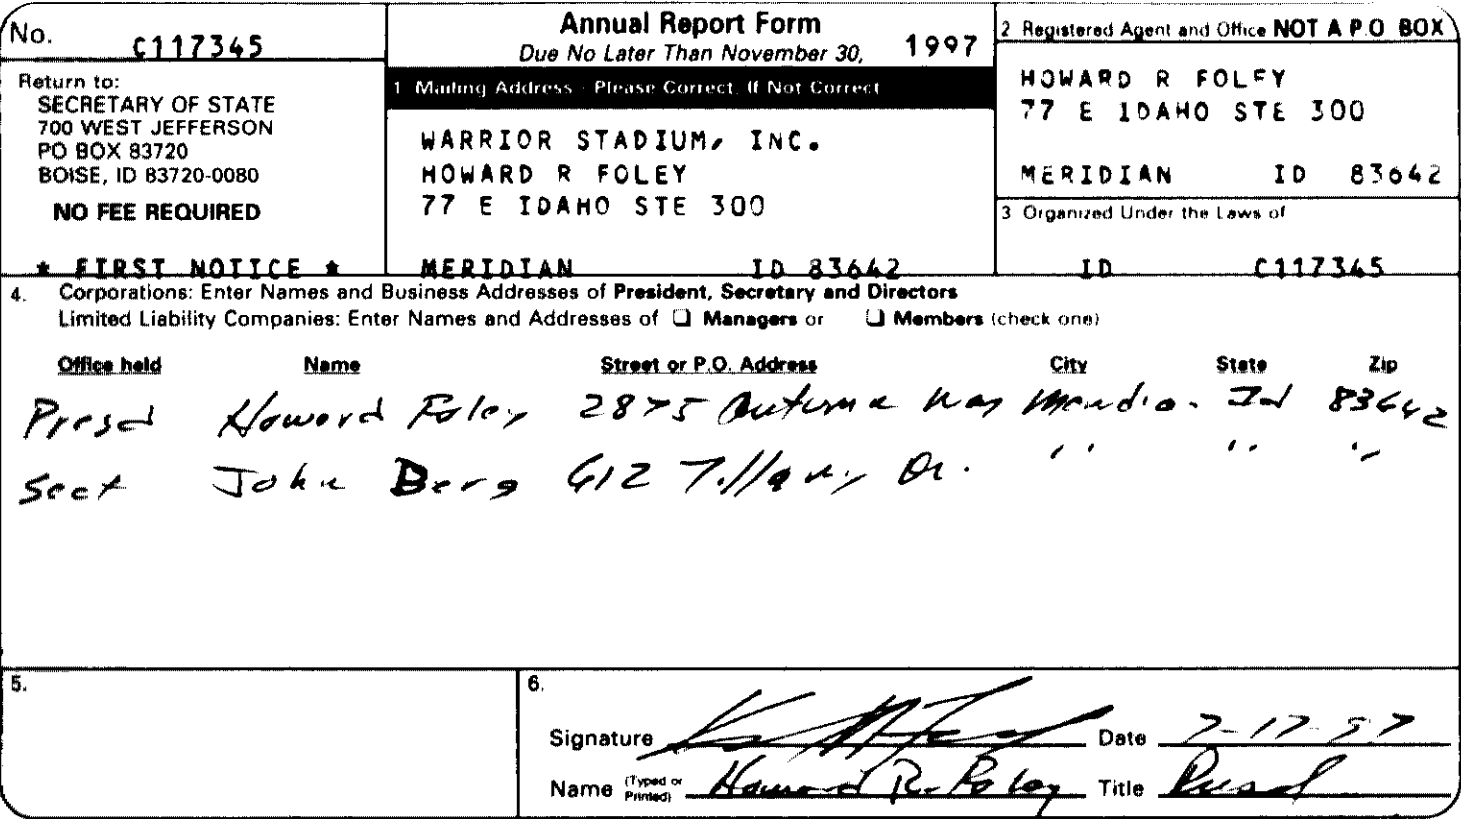 No. C117345
Return to:
SECRETARY OF STATE
700 WEST JEFFERSON
PO BOX 83720
BOISE, ID 83720-0080
NO FEE REQUIRED
* FIRST NOTICE *
Annual Report Form
Due No Later Than November 30, 1997
1 Mailing Address - Please Correct, If Not Correct
WARRIOR STADIUM, INC.
HOWARD R FOLEY
77 E IDAHO STE 300
MERIDIAN ID 83642
2 Registered Agent and Office NOT A P.O. BOX
HOWARD R FOLEY
77 E IDAHO STE 300
MERIDIAN ID 83642
3 Organized Under the Laws of
ID C117345
4. Corporations: Enter Names and Business Addresses of President, Secretary and Directors
Limited Liability Companies: Enter Names and Addresses of ☐ Managers or ☐ Members (check one)
Office held Name Street or P.O. Address City State Zip
Presd Howard Foley 2875 Autumn Way Id 83642
Sect John Berg 612 Tiffany Dr. " " "
5.
6.
Signature Date 7-17-97
Name (Typed or Printed) Howard R. Foley Title Presd